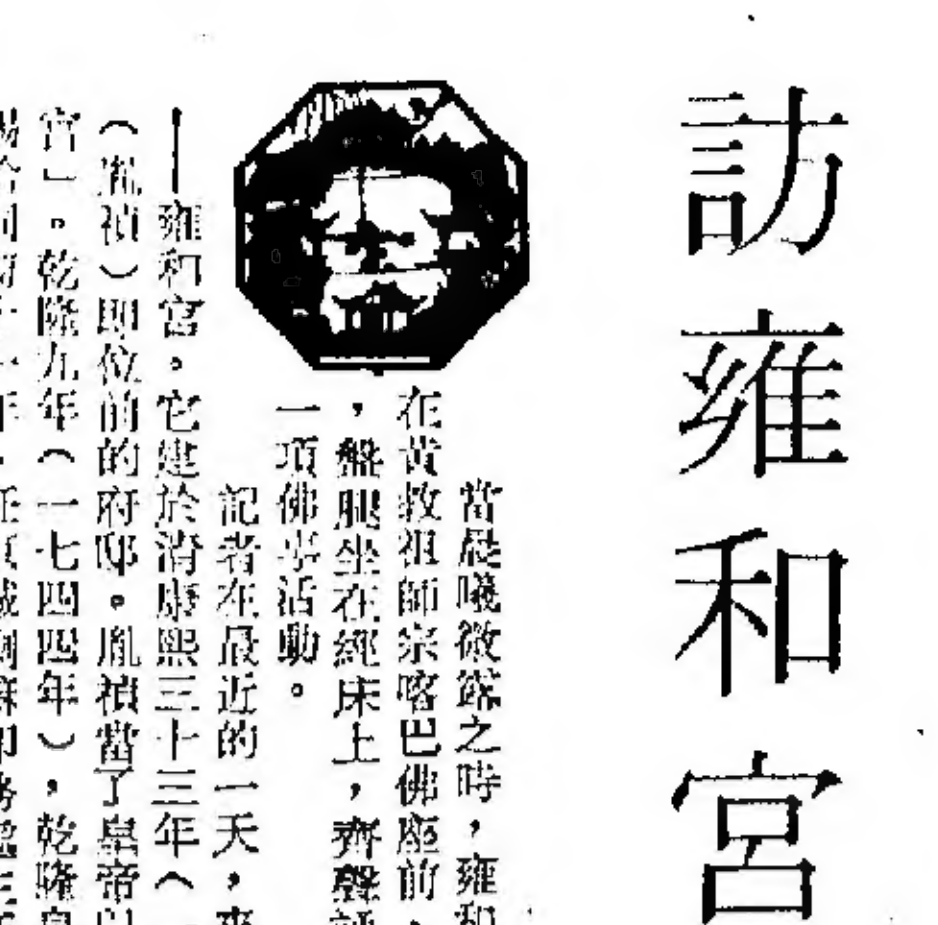 訪雍和宮
當晨曦微露之時，雍和
在黃教祖師宗喀巴佛座前，
，盤腿坐在經床上，齊聲誦
一項佛事活動。
記者在最近的一天，來
——雍和宮。它建於清康熙三十三年（一
（胤禎）即位前的府邸。胤禎當了皇帝以
宮」。乾隆九年（一七四四年），乾隆皇